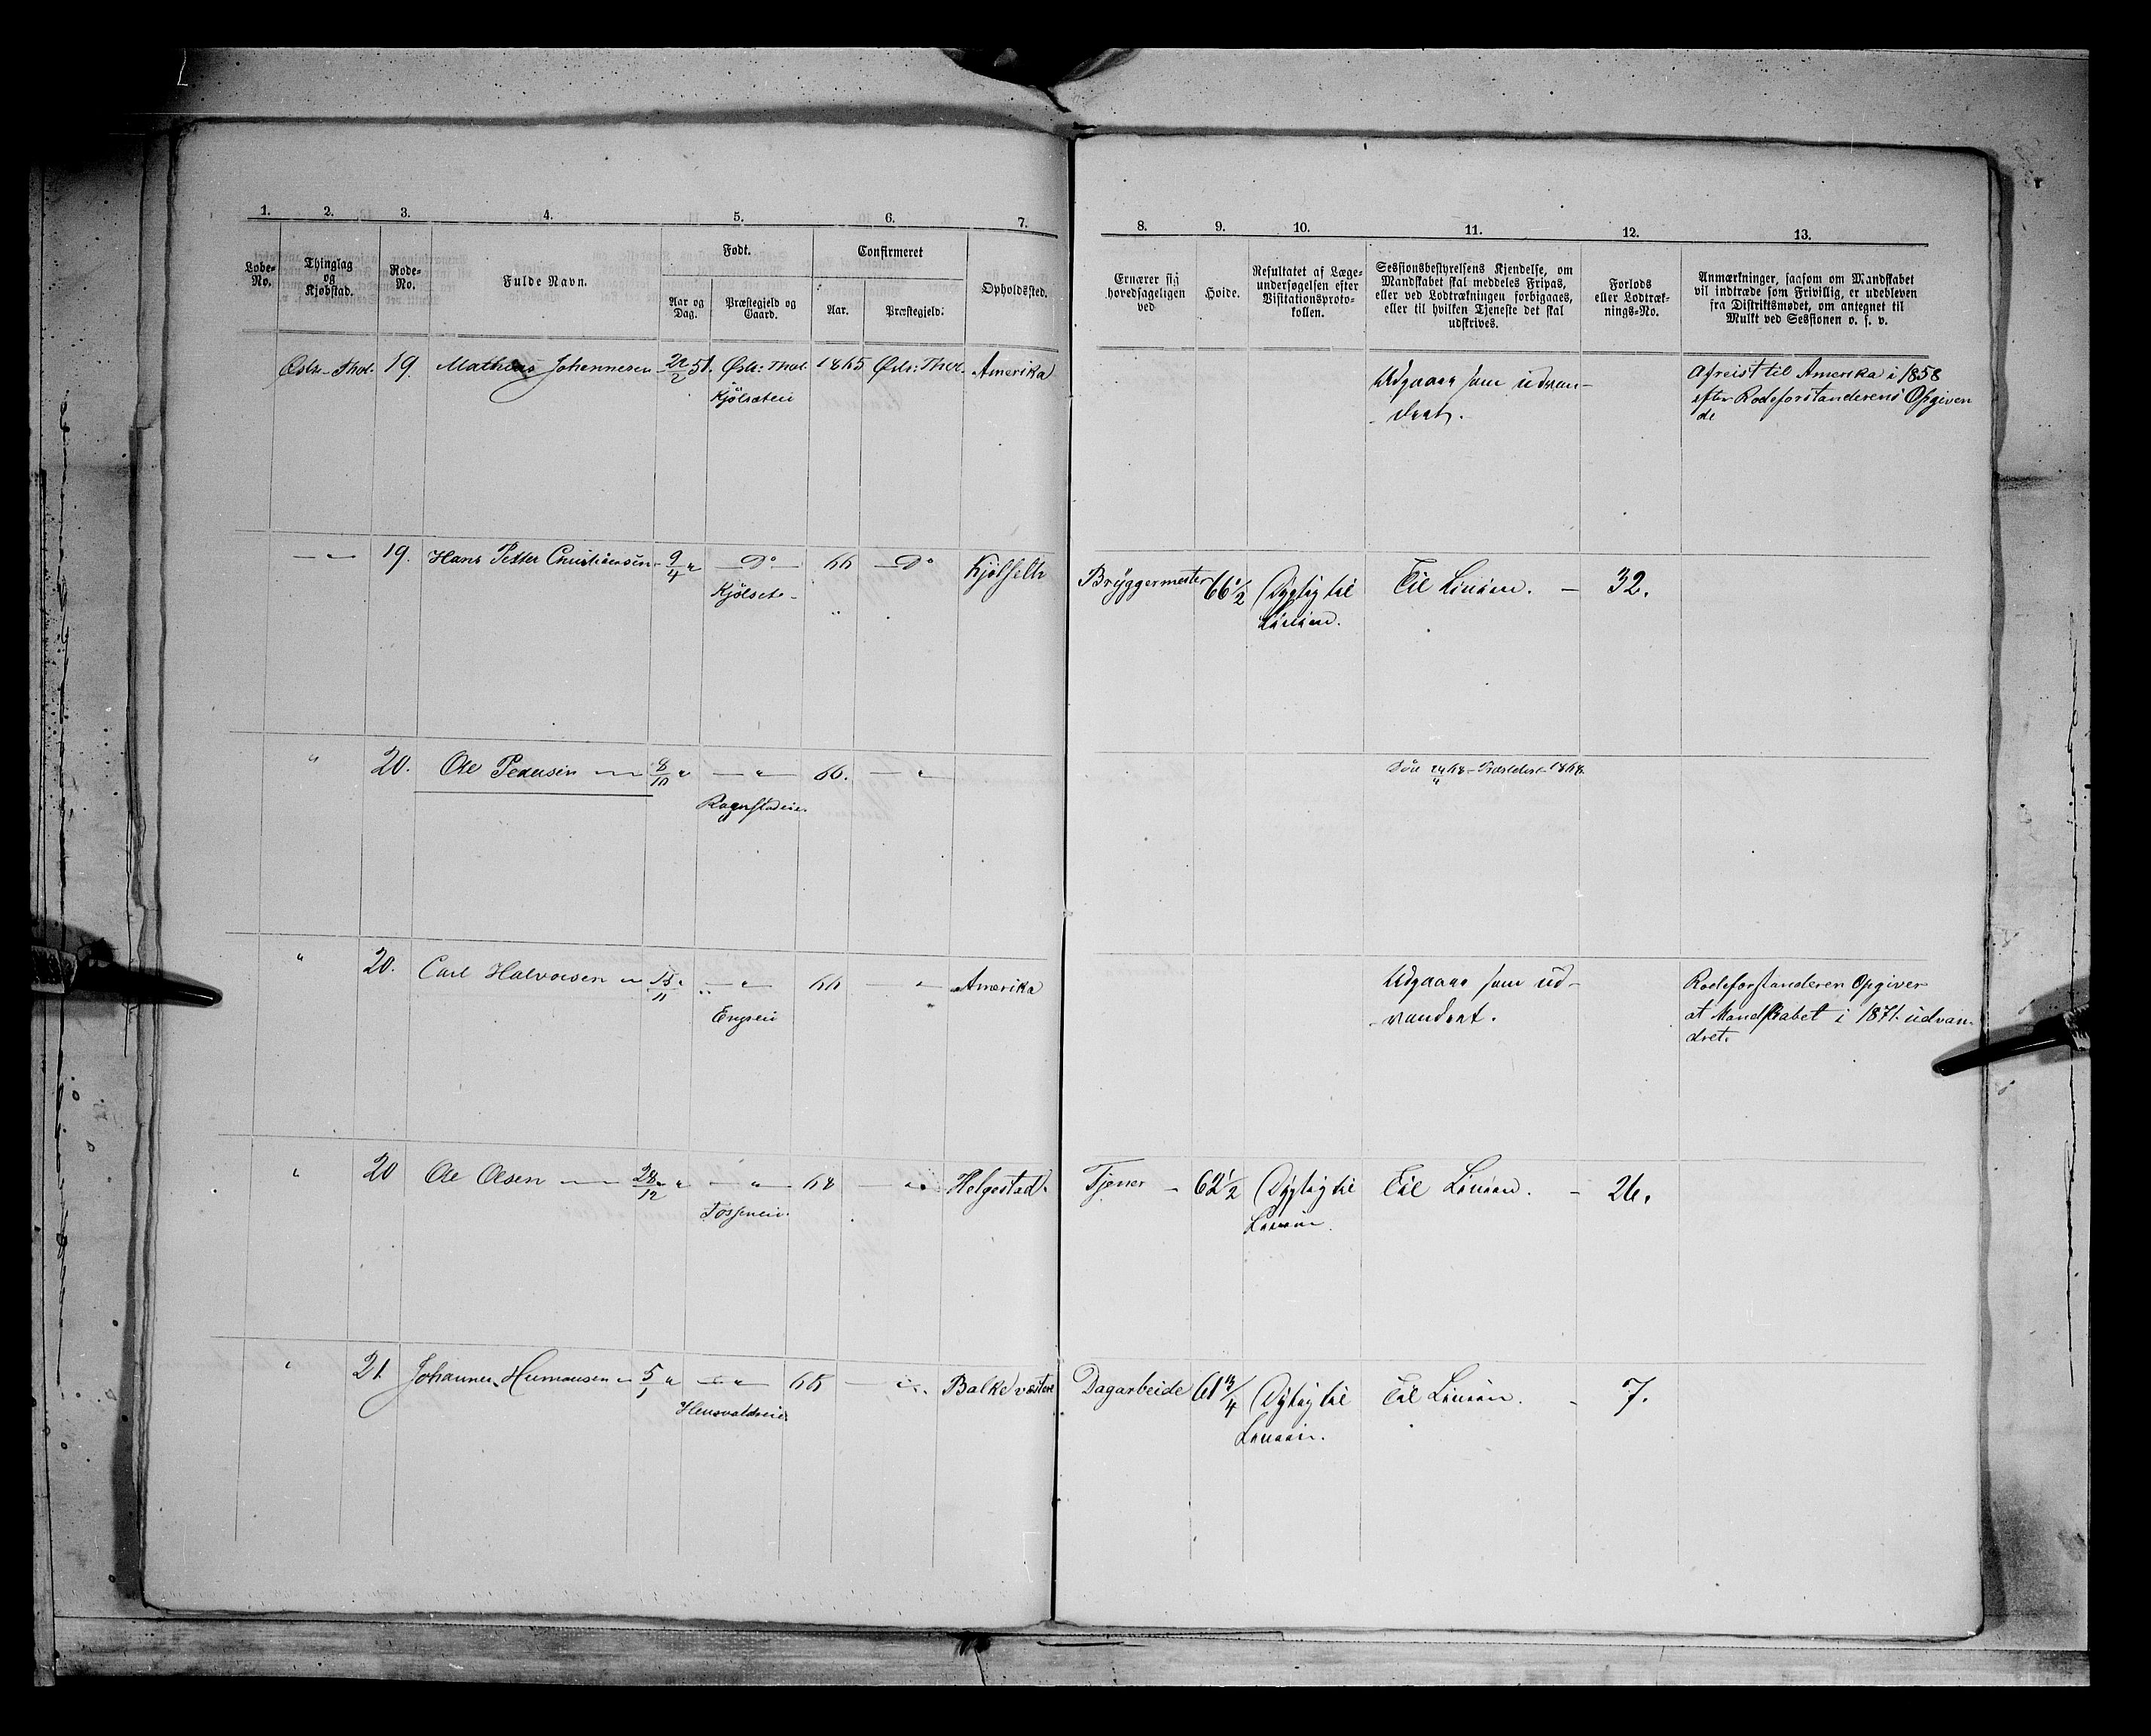 1. 2. 3. 4. 5. 6. 7.
Løbe-No.
Thinglag og Kjøbstad.
Rode-No.
Fulde Navn.
Født.
Aar og Dag.
Præstegjeld og Gaard.
Confirmeret
Aar.
Præstegjeld.
Opholdssted.
8. 9. 10. 11. 12. 13.
Ernærer sig hovedsageligen ved
Høide.
Resultatet af Læge-
undersøgelsen efter
Visitationsproto-
kollen.
Sessionsbestyrelsens Kjendelse, om
Mandskabet skal meddeles Fripas,
eller ved Lodtrækningen forbigaaes,
eller til hvilken Tjeneste det skal
udskrives.
Forlods
eller Lodtræk-
nings-No.
Anmærkninger, saasom om Mandskabet
vil indtræde som Frivillig, er udebleven
fra Distriktsmødet, om antegnet til
Mulkt ved Sessionen o. s. v.
19. Mathias Johannesen 22/2 51. 1865 Amerika
Kjölseteie
Udgaaar som udvan-
dret.
Afreist til Amerika i 1858
efter Rodeforstanderens Opgiven
de
— " 19. Hans Petter Christiansen 9/4 " Do 66 Do Kjölseth
Kjölseth
Bryggermester 66 1/2 Dygtig til Linien. Til Linien. — 32.
" 20. Ole Pedersen 8/10 " — " — 66. — "
Ragnstadeie
" 20. Carl Halvorsen 15/11 " — " — 66 — " Amerika
Engseie
Udgaaar som ud-
vandret.
Rodeforstanderen Opgiver
at Mandskabet i 1871 udvan-
dret.
" 20 Ole Olsen 28/12 " — " — 68 — " Helgestad.
Tjener — 62 1/2 Dygtig til Linien. Til Linien. — 26.
" 21. Johannes Hermansen 5/1 " — " — — " Balke vestre
Hensvoldseie
Dagarbeide 61 3/4 Dygtig til Linien. Til Linien. — 7.